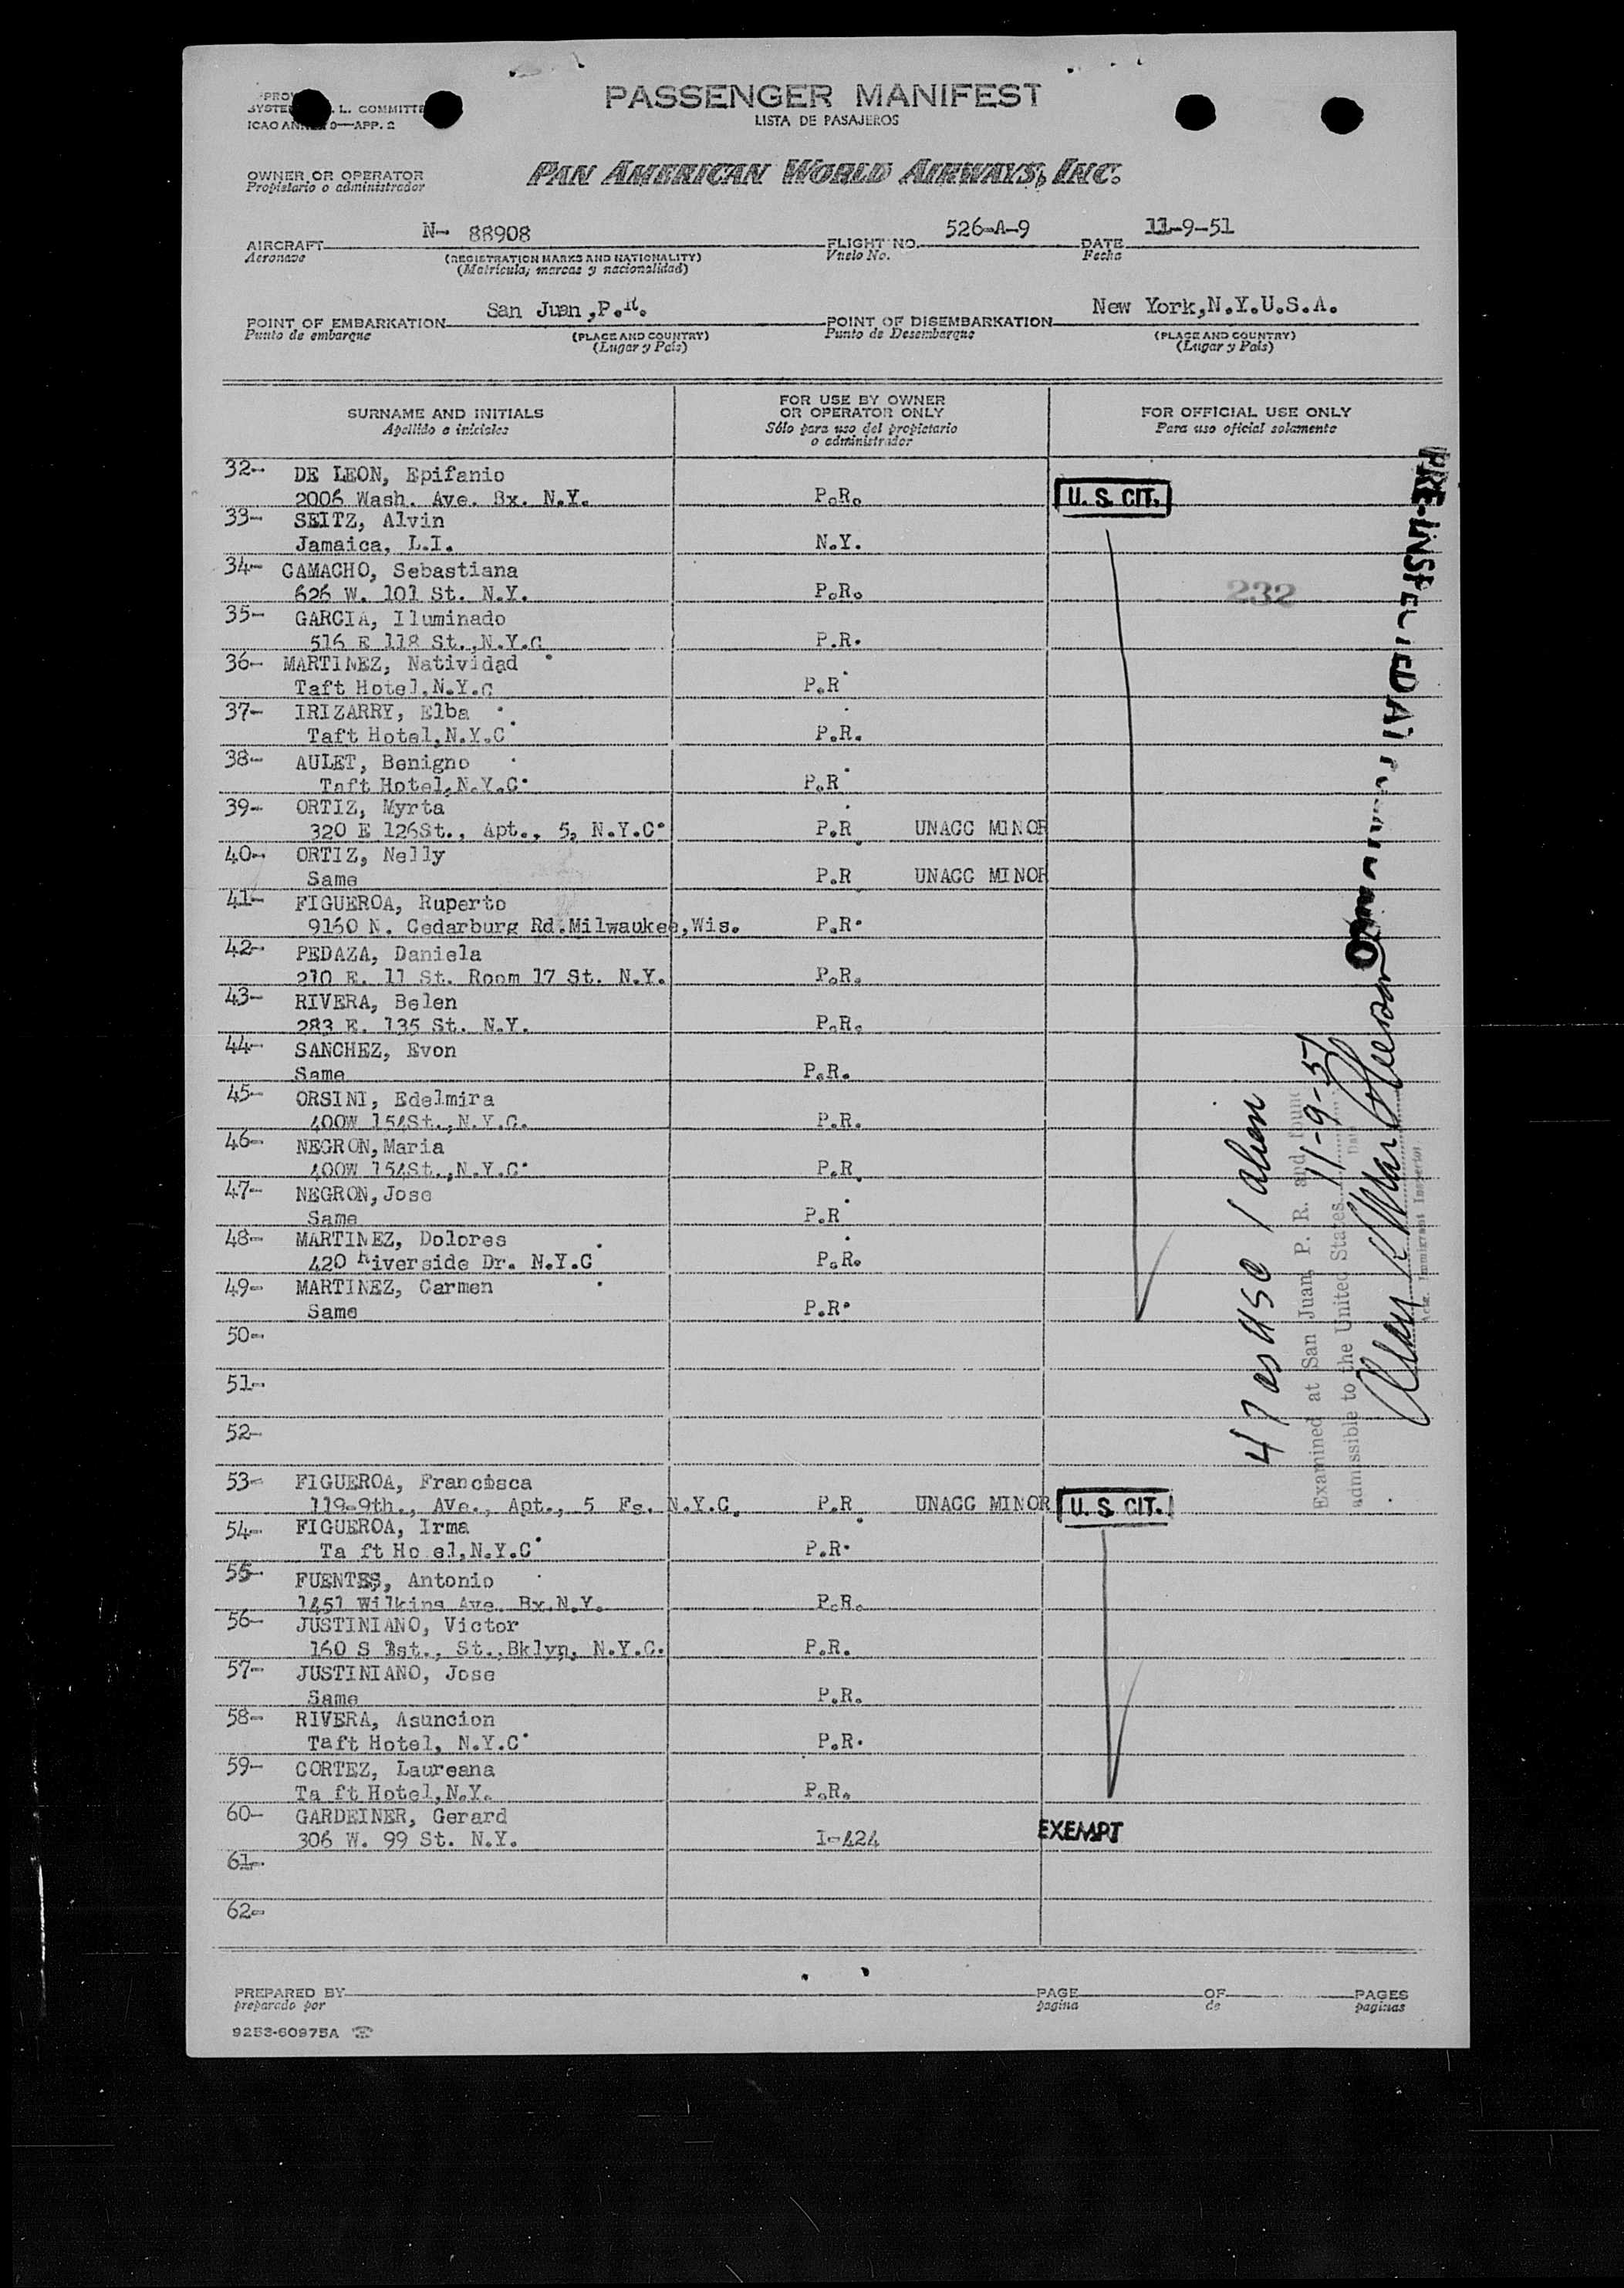 PASSENGER MANIFEST
LISTA DE PASAJEROS
SYSTE L. COMMITTE
ICAO AN 9—APP. 2
OWNER OR OPERATOR
Propietario o administrador
PAN AMERICAN WORLD AIRWAYS, INC.
AIRCRAFT N- 88908 FLIGHT NO. 526-A-9 DATE 11-9-51
Aeronave (REGISTRATION MARKS AND NATIONALITY) Vuelo No. Fecha
(Matrícula, marcas y nacionalidad)
POINT OF EMBARKATION San Juan ,P.R. POINT OF DISEMBARKATION New York,N.Y.U.S.A.
Punto de embarque (PLACE AND COUNTRY) Punto de Desembarque (PLACE AND COUNTRY)
(Lugar y País) (Lugar y País)
SURNAME AND INITIALS
Apellido e iniciales
FOR USE BY OWNER
OR OPERATOR ONLY
Sólo para uso del propietario
o administrador
FOR OFFICIAL USE ONLY
Para uso oficial solamente
32- DE LEON, Epifanio
2006 Wash. Ave. Bx. N.Y. P.R. U. S. CIT.
33- SEITZ, Alvin
Jamaica, L.I. N.Y.
34- CAMACHO, Sebastiana
626 W. 101 St. N.Y. P.R. 232
35- GARCIA, Iluminado
516 E 118 St.,N.Y.C P.R.
36- MARTINEZ, Natividad
Taft Hotel,N.Y.C P.R
37- IRIZARRY, Elba
Taft Hotel,N.Y.C P.R.
38- AULET, Benigno
Taft Hotel,N.Y.C. P.R
39- ORTIZ, Myrta
320 E 126St., Apt., 5, N.Y.C. P.R UNACC MINOR
40- ORTIZ, Nelly
Same P.R UNACC MINOR
41- FIGUEROA, Ruperto
9160 N. Cedarburg Rd.Milwaukee,Wis. P.R.
42- PEDAZA, Daniela
210 E. 11 St. Room 17 St. N.Y. P.R.
43- RIVERA, Belen
283 E. 135 St. N.Y. P.R.
44- SANCHEZ, Evon
Same P.R.
45- ORSINI, Edelmira
400W 154St.,N.Y.C. P.R.
46- NEGRON,Maria
400W 154St.,N.Y.C. P.R
47- NEGRON,Jose
Same P.R
48- MARTINEZ, Dolores
420 Riverside Dr. N.Y.C P.R.
49- MARTINEZ, Carmen
Same P.R.
50-
51-
52-
53- FIGUEROA, Francisca
119-9th., Ave., Apt., 5 Fs. N.Y.C. P.R UNACC MINOR U. S. CIT.
54- FIGUEROA, Irma
Ta ft Ho el,N.Y.C P.R.
55- FUENTES, Antonio
1451 Wilkins Ave. Bx.N.Y. P.R.
56- JUSTINIANO, Victor
160 S 1st., St.,Bklyn, N.Y.C. P.R.
57- JUSTINIANO, Jose
Same P.R.
58- RIVERA, Asuncion
Taft Hotel, N.Y.C P.R.
59- CORTEZ, Laureana
Ta ft Hotel,N.Y. P.R.
60- GARDEINER, Gerard
306 W. 99 St. N.Y. I-424 EXEMPT
61-
62-
47 as USC 1 alien
Examined at San Juan, P. R. and found
admissible to the United States 11-9-51
Date
Actg. Immigrant Inspector
PREPARED BY PAGE OF PAGES
preparado por página de páginas
9253-60975A